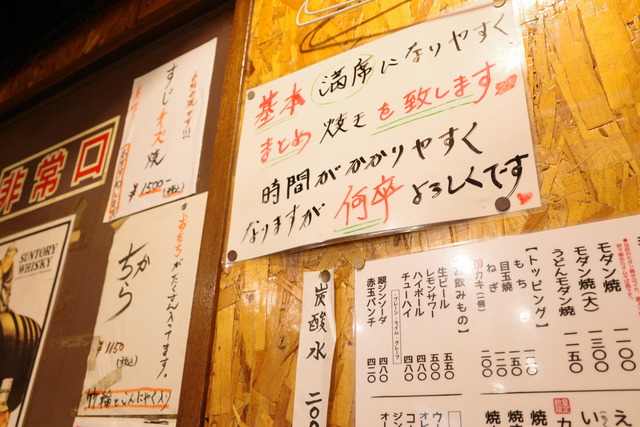 基本 満席になりやすく
まとめ焼きを致します
時間がかかりやすく
なりますが 何卒よろしくです
すじチーズ焼
¥1500-(税込)
非常口
SUNTORY
WHISKY
ちから
がたくさん入ってます。
¥1150(税込)
竹輪とこんにゃく入り
炭酸水 二〇〇
モダン焼
モダン焼(大) 一三〇〇
うどんモダン焼 一一五〇
【トッピング】
もち
目玉焼
ねぎ 二〇〇
カキ(一個)
お飲みもの】
生ビール 五五〇
レモンサワー 五五〇
ハイボール 四八〇
チューハイ 四八〇
(プレーン・ライム・グレープ)
翠ジンソーダ 四八〇
赤玉パンチ 四二〇